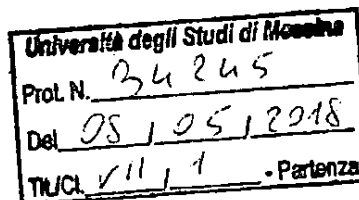 Università degli Studi di Messina
Prot. N. 34245
Del 08 / 05 / 2018
Tit./Cl. VII / 1 - Partenza